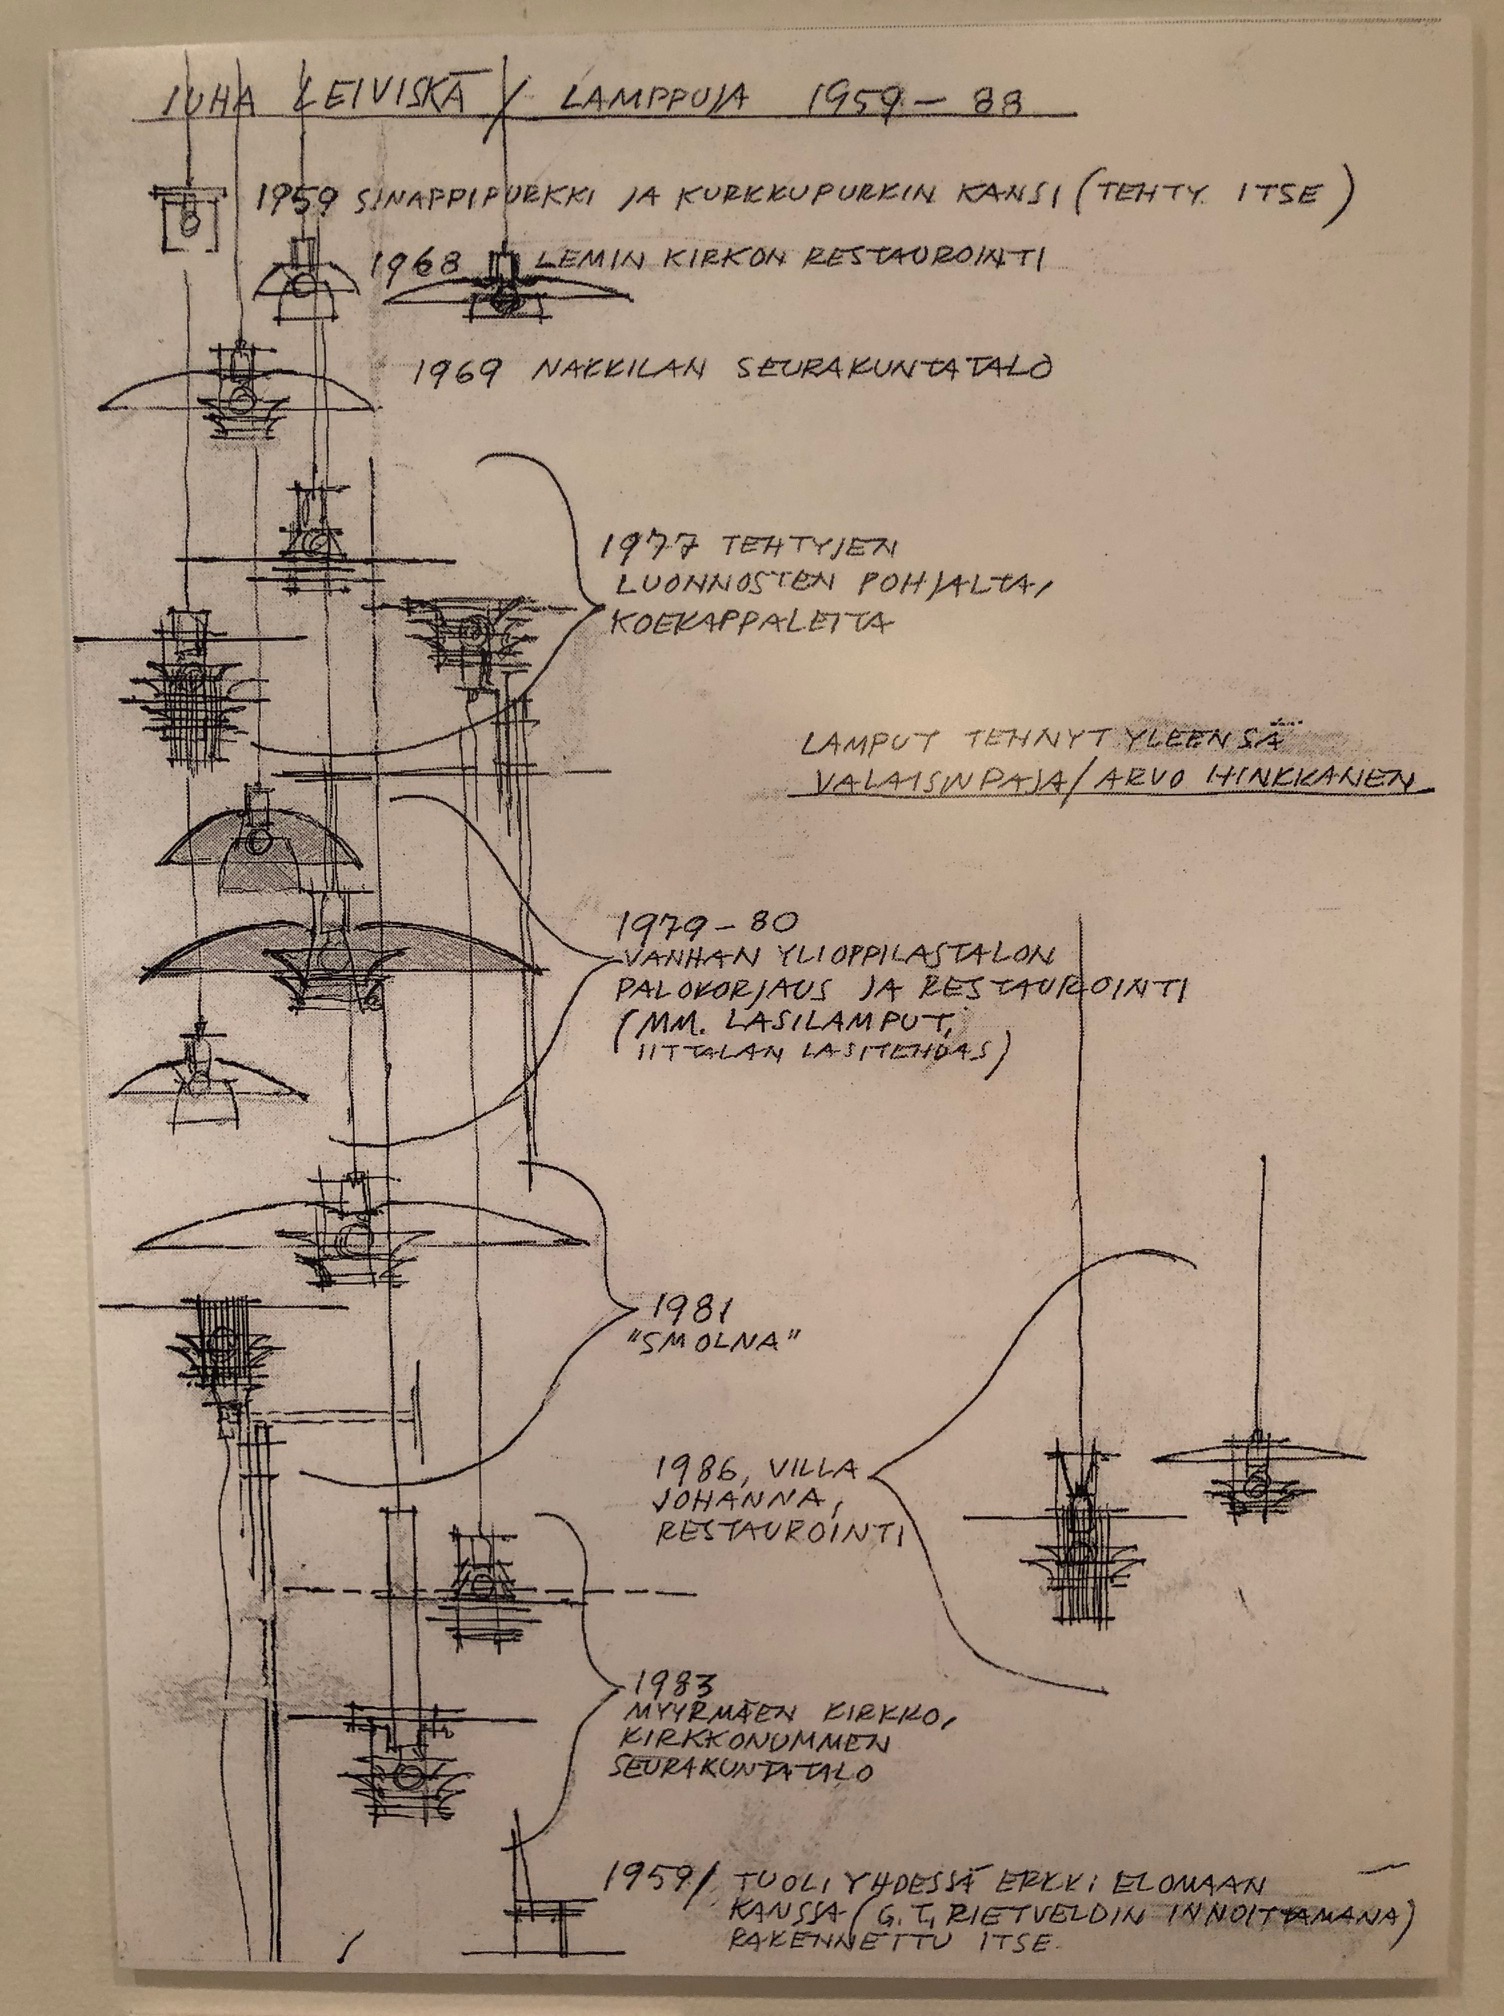 JUHA LEIVISKÄ / LAMPPUJA 1959 – 88
1959 SINAPPIPURKKI JA KURKKUPURKIN KANSI (TEHTY ITSE)
1968 LEMIN KIRKON RESTAUROINTI
1969 NAKKILAN SEURAKUNTATALO
1977 TEHTYJEN
LUONNOSTEN POHJALTA,
KOEKAPPALEITA
LAMPUT TEHNYT YLEENSÄ
VALAISINPAJA/ARVO HINKKANEN
1979–80
VANHAN YLIOPPILASTALON
PALOKORJAUS JA RESTAUROINTI
(MM. LASILAMPUT,
IITTALAN LASITEHDAS)
1981
"SMOLNA"
1986, VILLA
JOHANNA,
RESTAUROINTI
1983
MYYRMÄEN KIRKKO,
KIRKKONUMMEN
SEURAKUNTATALO
1959/ TUOLI YHDESSÄ ERKKI ELOMAAN
KANSSA (G.T. RIETVELDIN INNOITTAMANA)
RAKENNETTU ITSE.